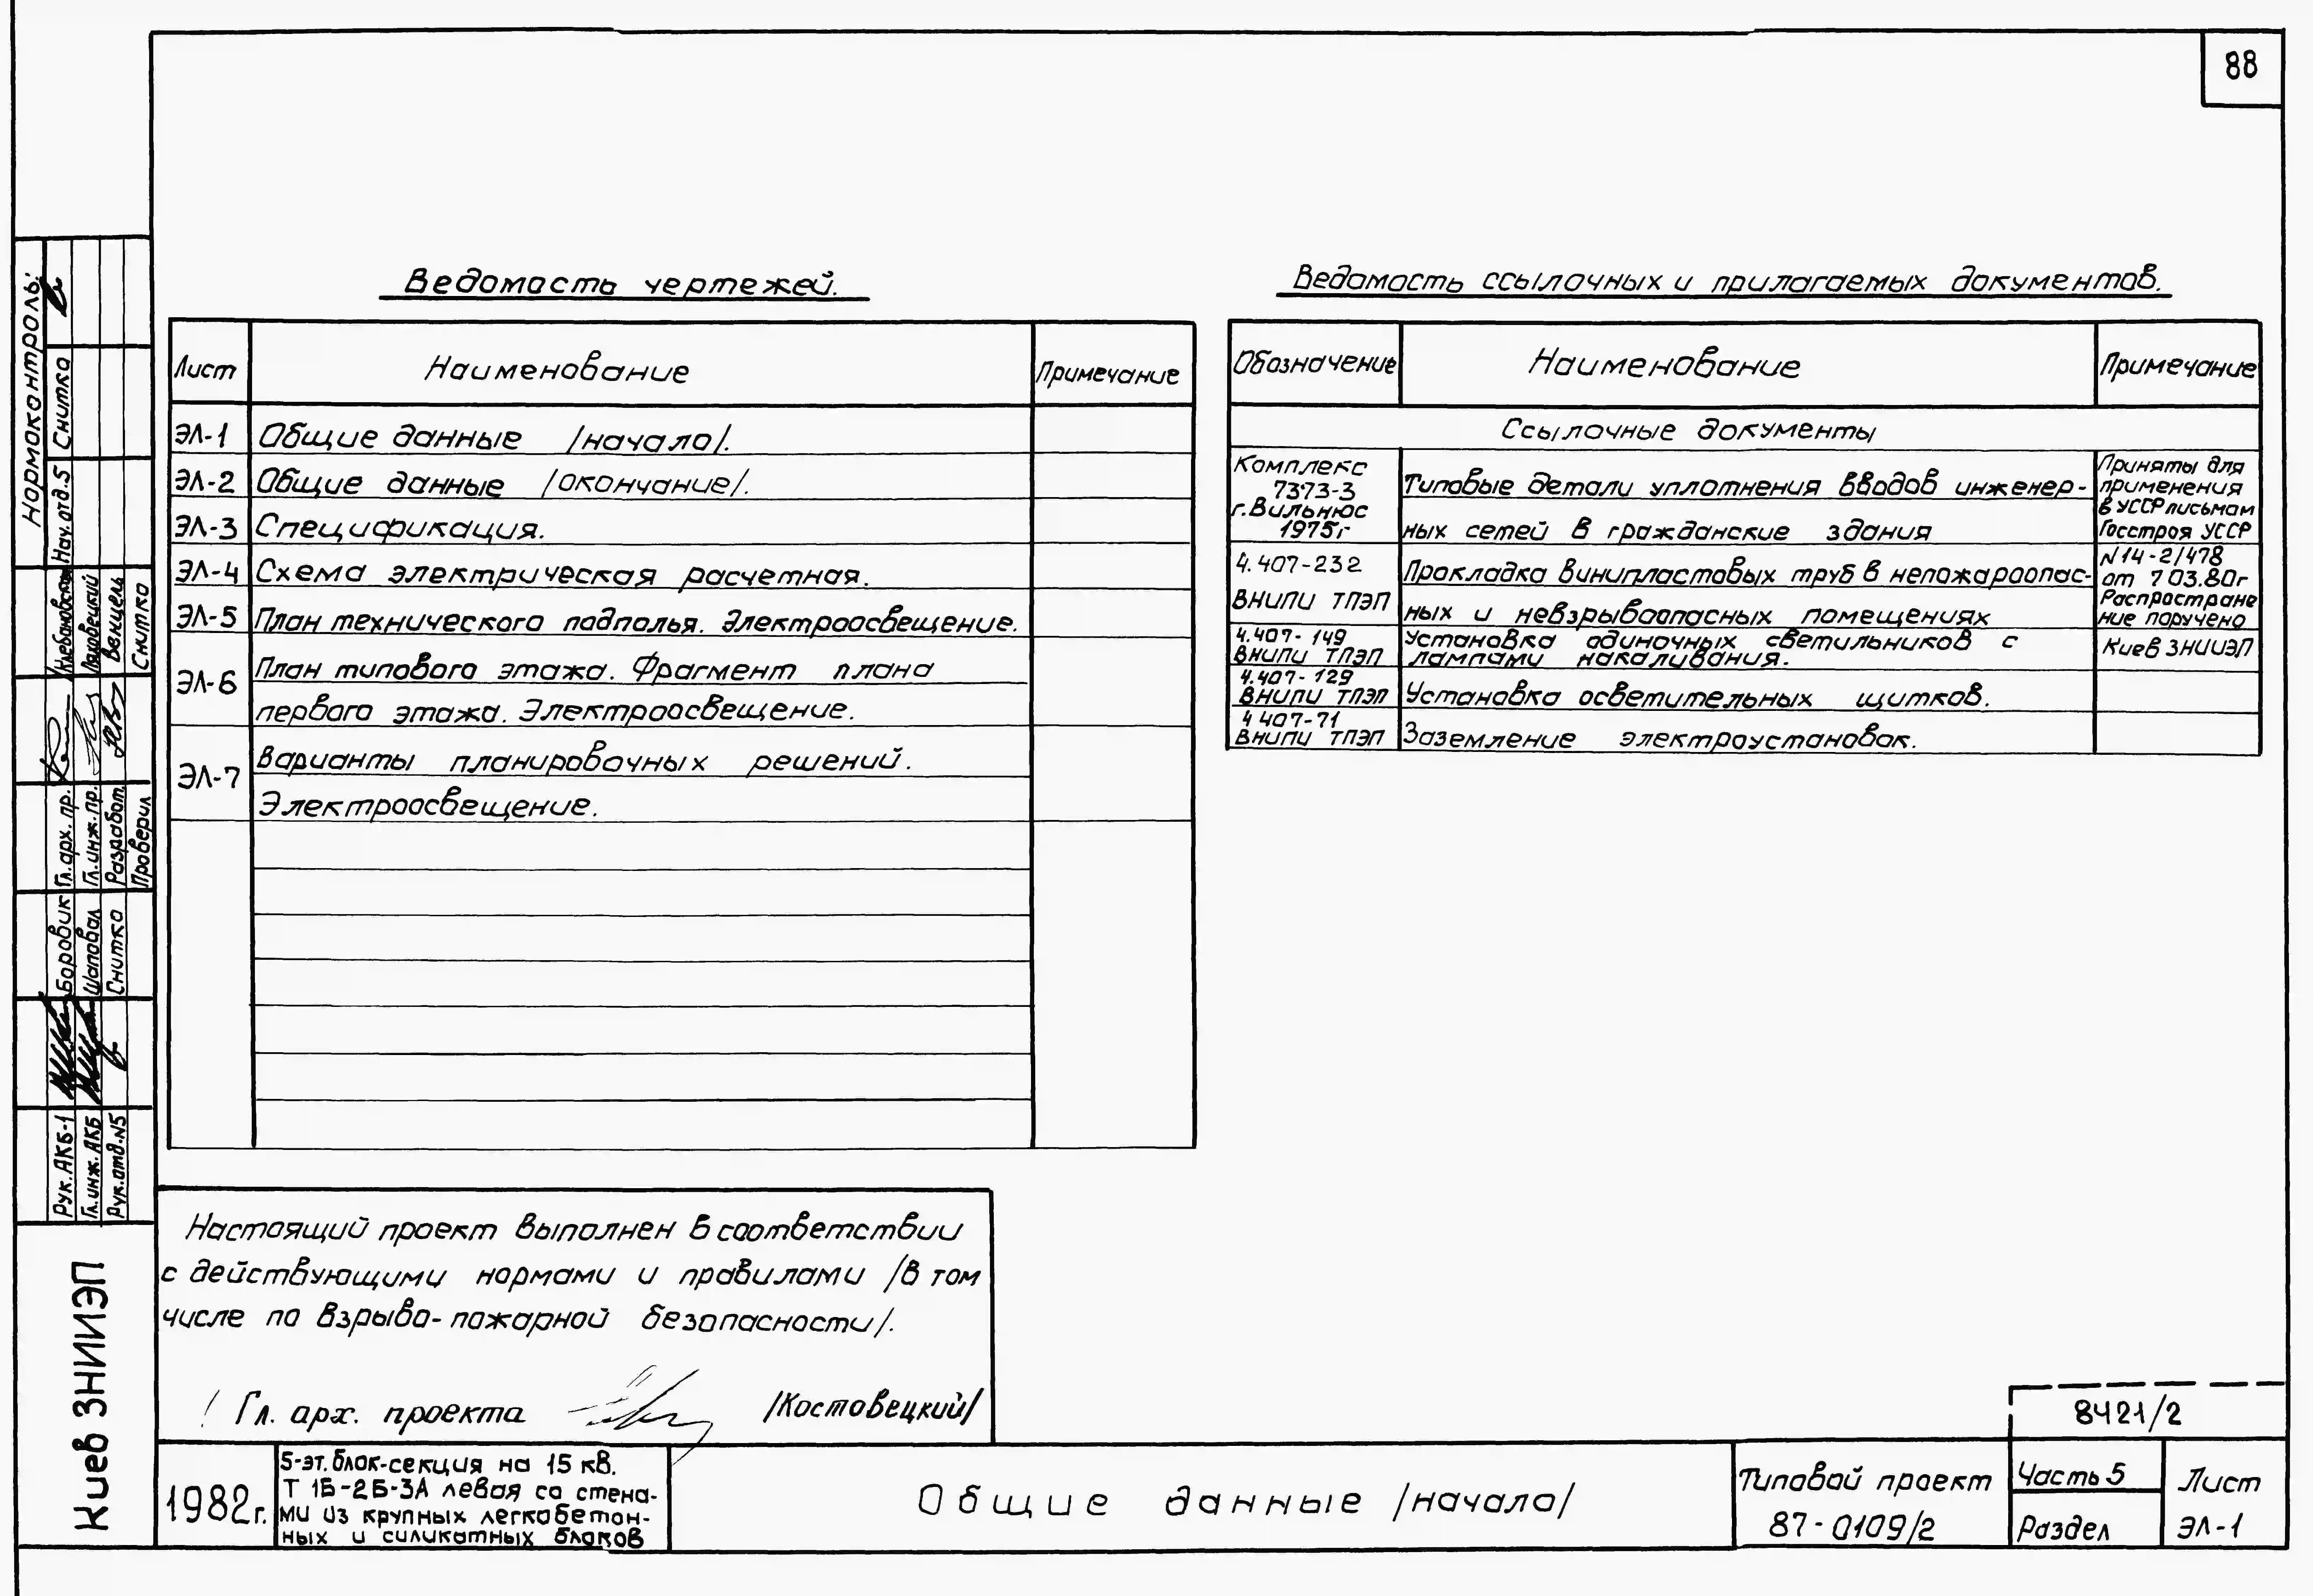 88
Ведомость чертежей.
Лист Наименование Примечание
ЭЛ-1 Общие данные /начало/.
ЭЛ-2 Общие данные /окончание/.
ЭЛ-3 Спецификация.
ЭЛ-4 Схема электрическая расчетная.
ЭЛ-5 План технического подполья. Электроосвещение.
ЭЛ-6 План типового этажа. Фрагмент плана
первого этажа. Электроосвещение.
ЭЛ-7 Варианты планировочных решений.
Электроосвещение.
Ведомость ссылочных и прилагаемых документов.
Обозначение Наименование Примечание
Ссылочные документы
Комплекс
7373-3
г. Вильнюс
1975г
Типовые детали уплотнения вводов инженер-
ных сетей в гражданские здания
Приняты для
применения
в УССР письмом
Госстроя УССР
N14-2/478
от 7 03.80г
Распростране
ние поручено
Киев ЗНИИЭП
4.407-232
ВНИПИ ТПЭП
Прокладка винипластовых труб в непожароопас-
ных и невзрывоопасных помещениях
4.407-149
ВНИПИ ТПЭП
Установка одиночных светильников с
лампами накаливания.
4.407-129
ВНИПИ ТПЭП
Установка осветительных щитков.
4 407-71
ВНИПИ ТПЭП
Заземление электроустановок.
Настоящий проект выполнен в соответствии
с действующими нормами и правилами /в том
числе по взрыво-пожарной безопасности/.
Гл. арх. проекта /Костовецкий/
Нормоконтроль:
Нач. отд. 5 Снитко
Гл. арх. пр.
Гл. инж. пр. Ляховецкий
Разработ. Венцель
Проверил Снитко
Рук. АКБ-1 Боровик
Гл. инж. АКБ Шаповал
Рук. отд. N5 Снитко
Киев ЗНИИЭП
1982г.
5-эт. блок-секция на 15 кв.
Т 1Б-2Б-3А левая со стена-
ми из крупных легкобетон-
ных и силикатных блоков
Общие данные /начало/
8421/2
Типовой проект
87-0109/2
Часть 5
Раздел
Лист
ЭЛ-1